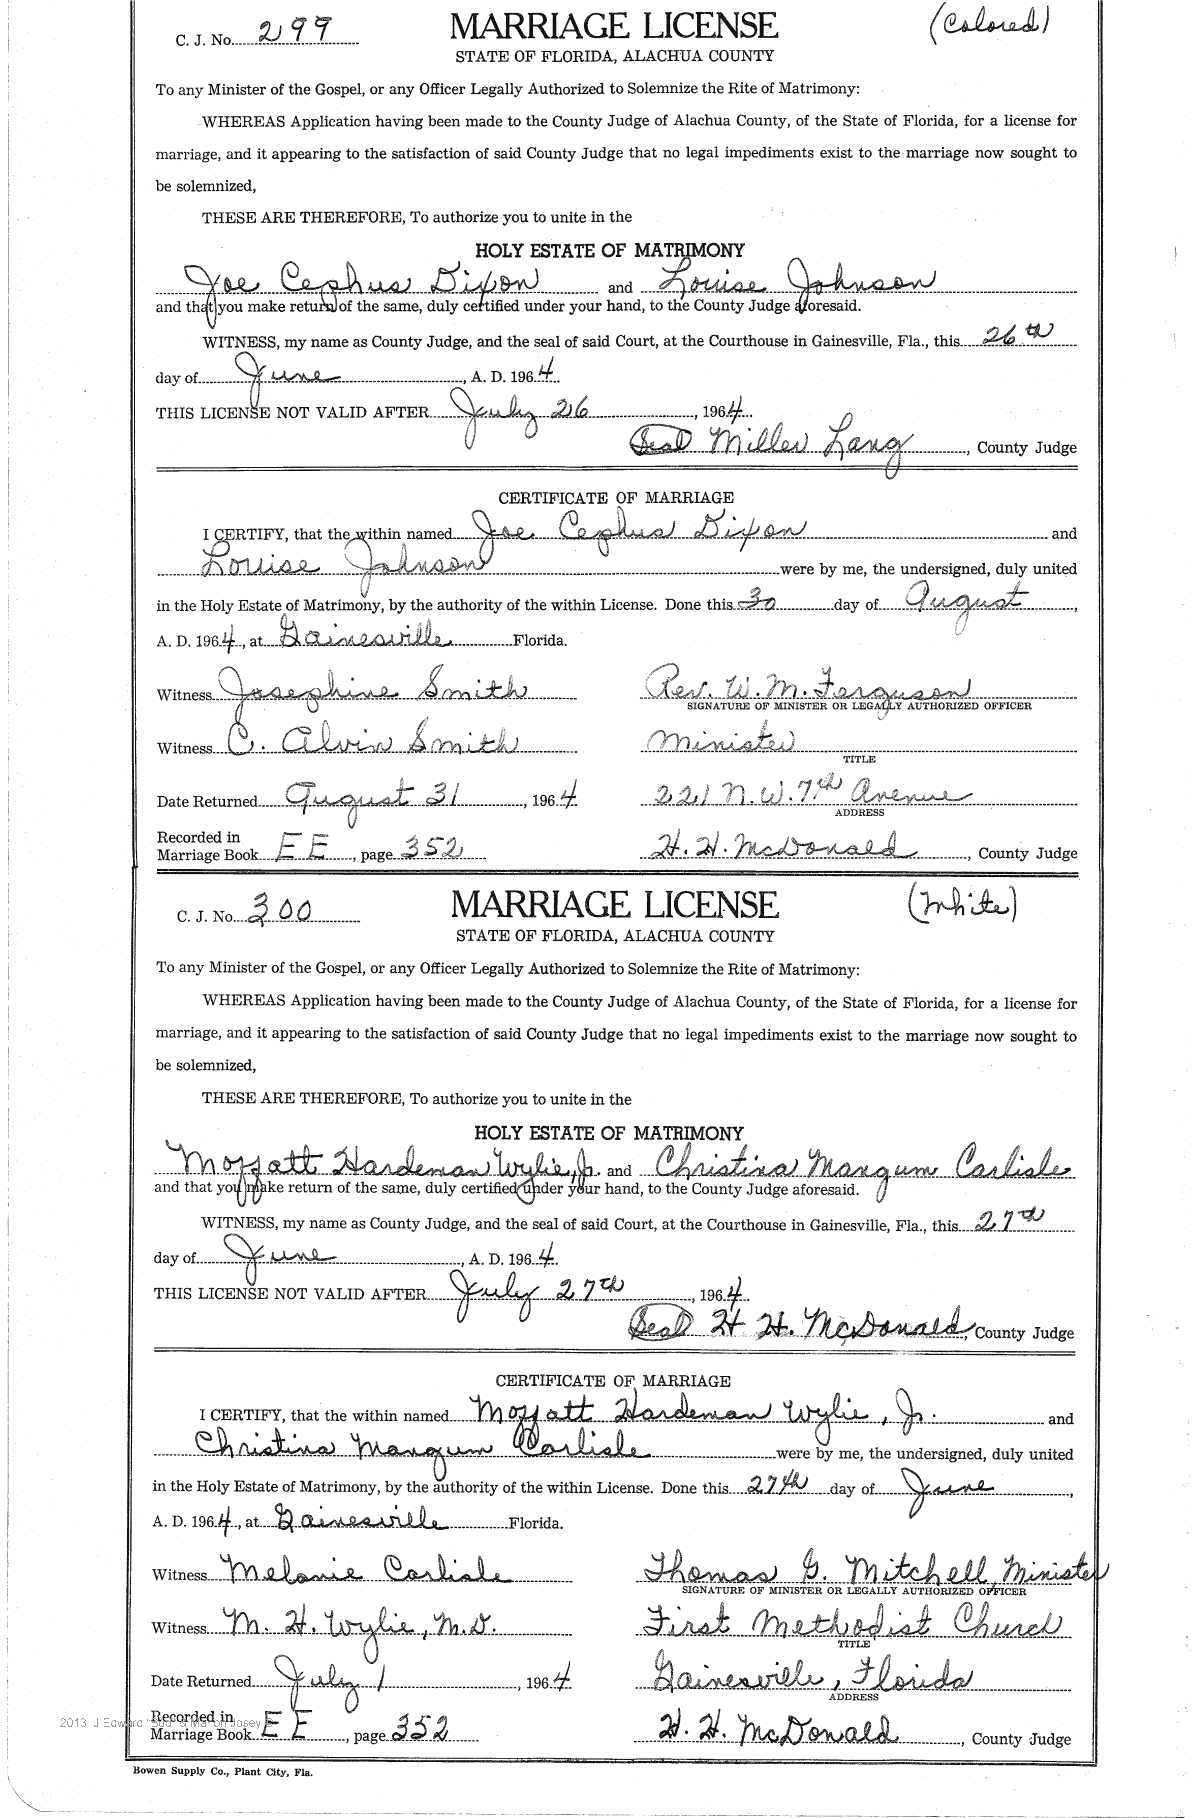 C. J. No. 299 MARRIAGE LICENSE (Colored)
STATE OF FLORIDA, ALACHUA COUNTY
To any Minister of the Gospel, or any Officer Legally Authorized to Solemnize the Rite of Matrimony:
WHEREAS Application having been made to the County Judge of Alachua County, of the State of Florida, for a license for
marriage, and it appearing to the satisfaction of said County Judge that no legal impediments exist to the marriage now sought to
be solemnized,
THESE ARE THEREFORE, To authorize you to unite in the
HOLY ESTATE OF MATRIMONY
Joe Cephus Dixon and Louise Johnson
and that you make return of the same, duly certified under your hand, to the County Judge aforesaid.
WITNESS, my name as County Judge, and the seal of said Court, at the Courthouse in Gainesville, Fla., this 26th
day of June, A. D. 1964.
THIS LICENSE NOT VALID AFTER July 26, 1964
Seal Miller Lang, County Judge
CERTIFICATE OF MARRIAGE
I CERTIFY, that the within named Joe Cephus Dixon and
Louise Johnson were by me, the undersigned, duly united
in the Holy Estate of Matrimony, by the authority of the within License. Done this 30 day of August,
A. D. 1964, at Gainesville Florida.
Witness Josephine Smith Rev. W. M. Ferguson
SIGNATURE OF MINISTER OR LEGALLY AUTHORIZED OFFICER
Witness C. Alvin Smith Minister
TITLE
Date Returned August 31, 1964 221 N. W. 7th Avenue
ADDRESS
Recorded in
Marriage Book EE, page 352 H. H. McDonald, County Judge
C. J. No. 300 MARRIAGE LICENSE (White)
STATE OF FLORIDA, ALACHUA COUNTY
To any Minister of the Gospel, or any Officer Legally Authorized to Solemnize the Rite of Matrimony:
WHEREAS Application having been made to the County Judge of Alachua County, of the State of Florida, for a license for
marriage, and it appearing to the satisfaction of said County Judge that no legal impediments exist to the marriage now sought to
be solemnized,
THESE ARE THEREFORE, To authorize you to unite in the
HOLY ESTATE OF MATRIMONY
Moffatt Hardeman Wylie, Jr. and Christina Mangum Carlisle
and that you make return of the same, duly certified under your hand, to the County Judge aforesaid.
WITNESS, my name as County Judge, and the seal of said Court, at the Courthouse in Gainesville, Fla., this 27th
day of June, A. D. 1964.
THIS LICENSE NOT VALID AFTER July 27th, 1964.
Seal H. H. McDonald, County Judge
CERTIFICATE OF MARRIAGE
I CERTIFY, that the within named Moffatt Hardeman Wylie, Jr. and
Christina Mangum Carlisle were by me, the undersigned, duly united
in the Holy Estate of Matrimony, by the authority of the within License. Done this 27th day of June,
A. D. 1964, at Gainesville Florida.
Witness Melanie Carlisle Thomas G. Mitchell, Minister
SIGNATURE OF MINISTER OR LEGALLY AUTHORIZED OFFICER
Witness M. H. Wylie, M.D. First Methodist Church
TITLE
Date Returned July 1, 1964 Gainesville, Florida
ADDRESS
Recorded in
2013 J Edward Josey
Marriage Book EE, page 352 H. H. McDonald, County Judge
Bowen Supply Co., Plant City, Fla.